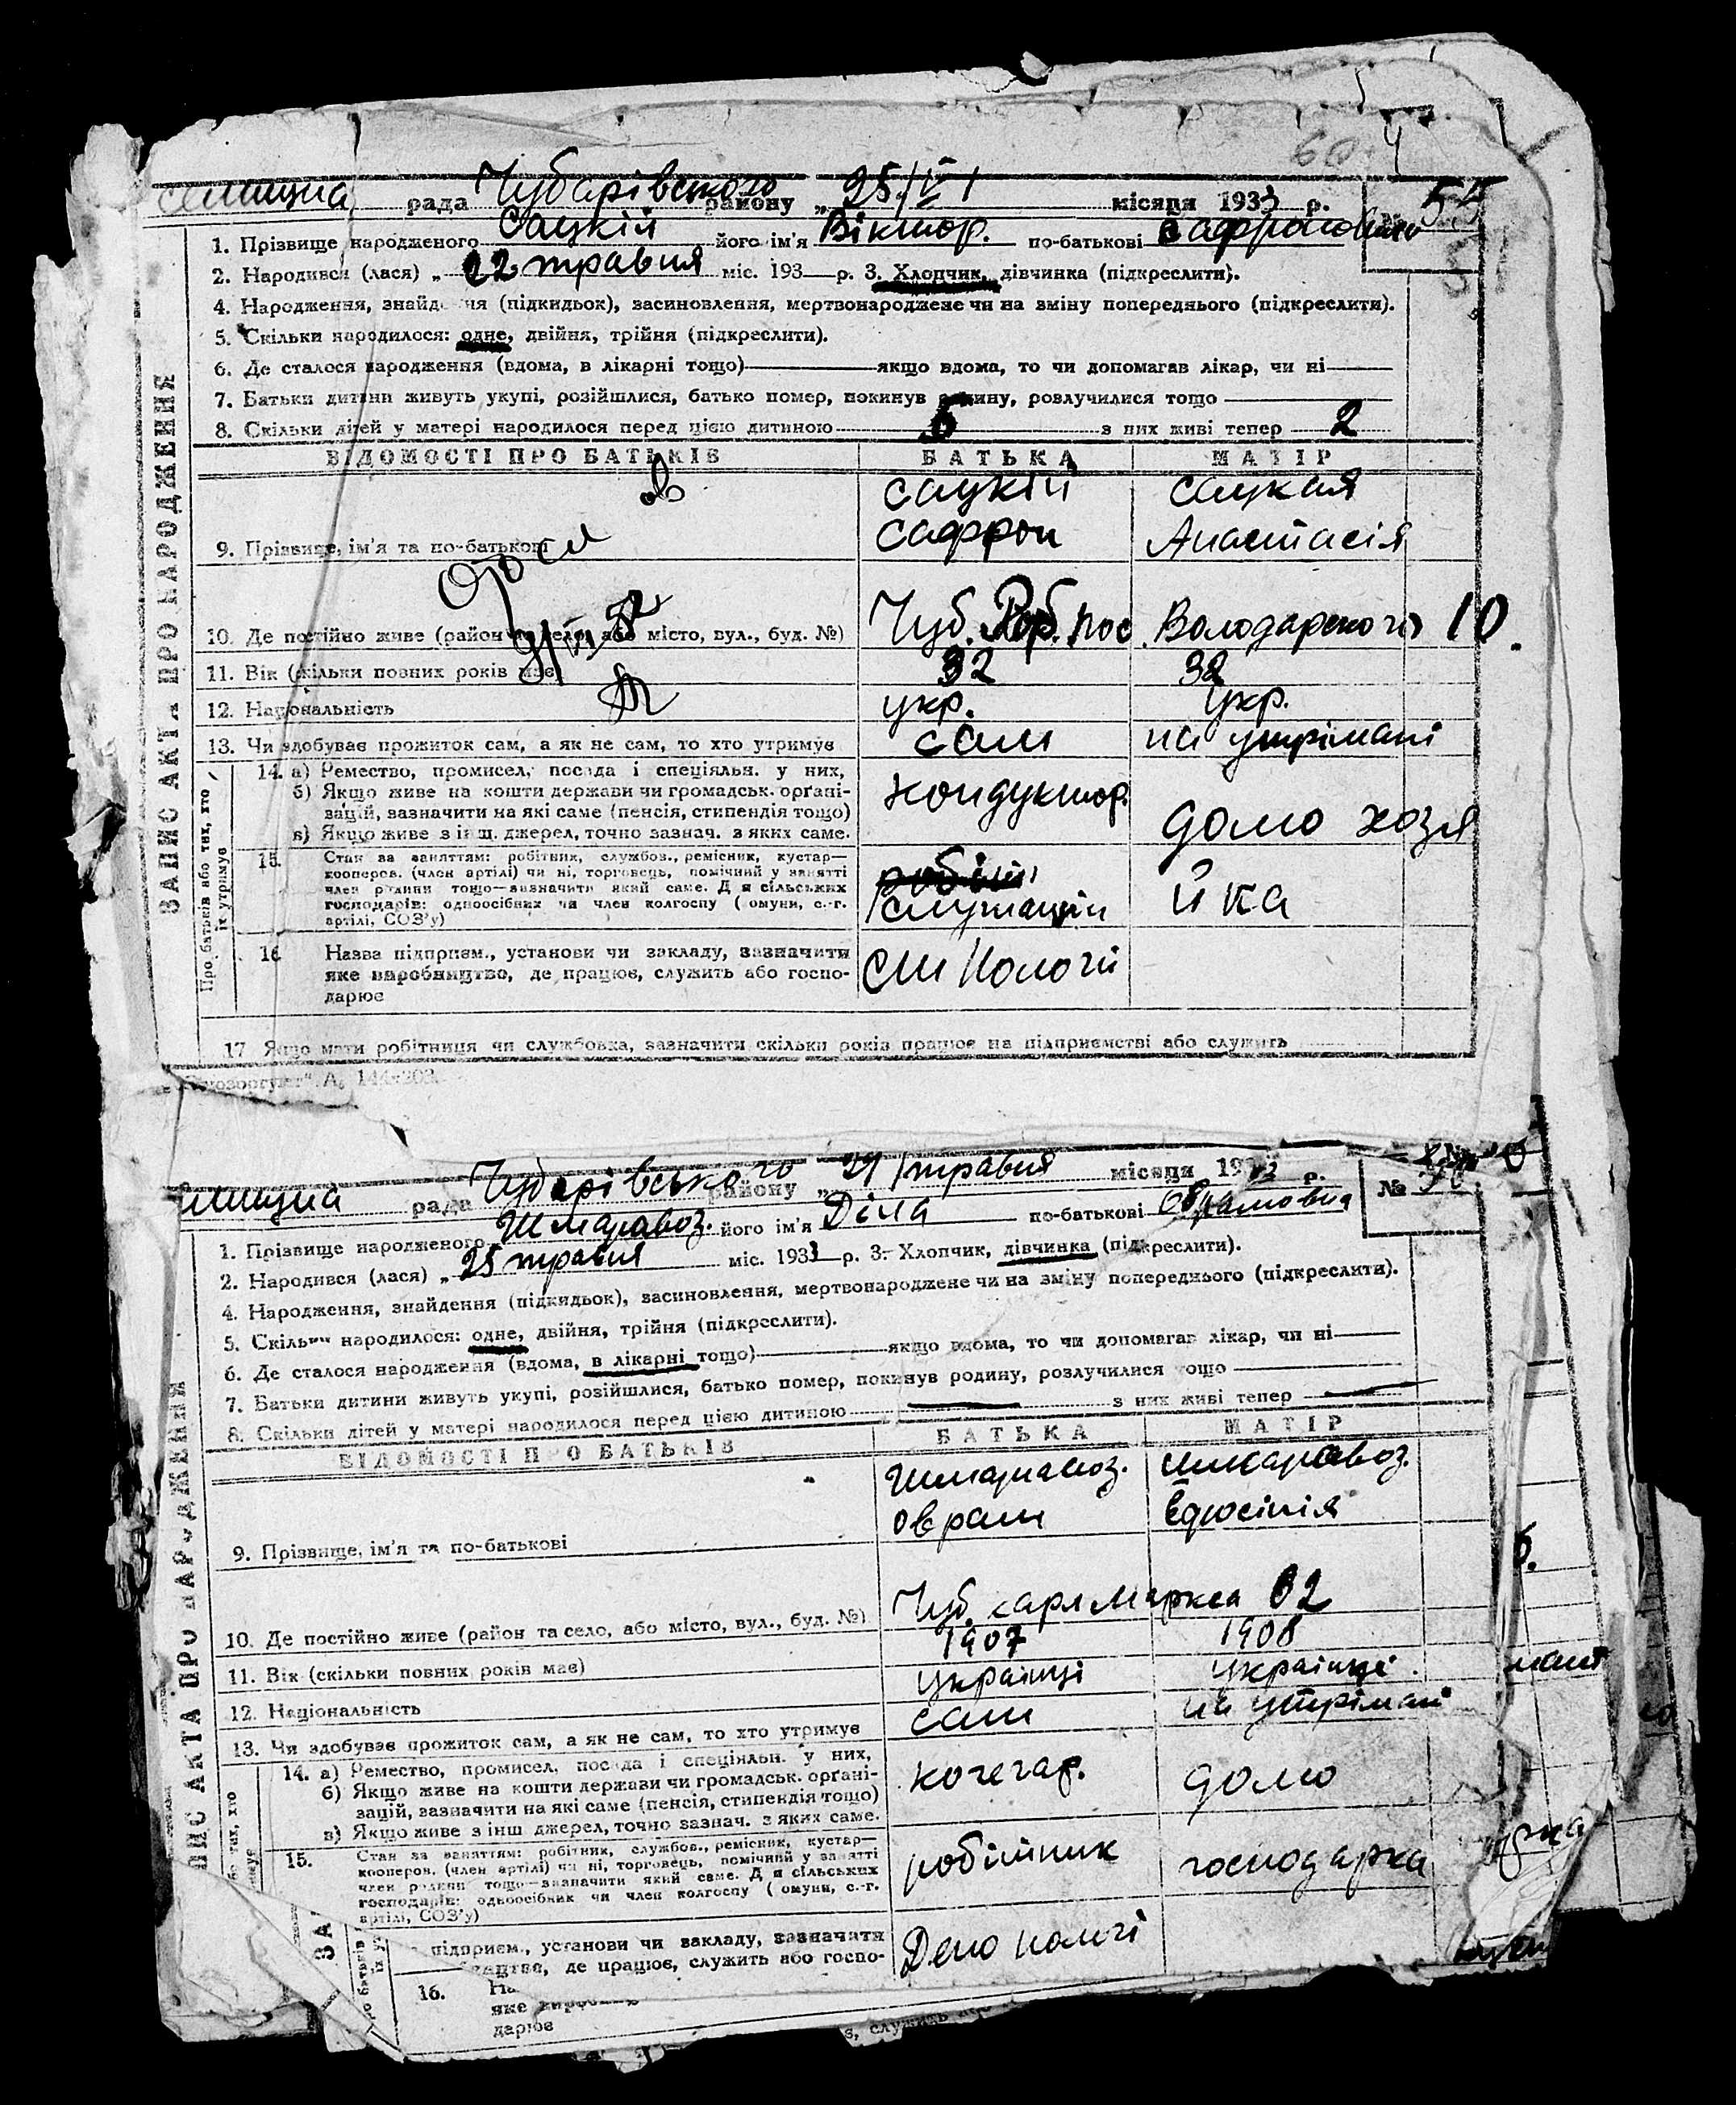 60
селищна рада Чубарівського району „25/V місяця 1933 р.
№ 55
1. Прізвище народженого Сацкій його ім'я Віктор. по-батькові Сафронович
2. Народився (лася) „22 травня міс. 193 р. 3. Хлопчик, дівчинка (підкреслити).
4. Народження, знайдення (підкидьок), засиновлення, мертвонароджене чи на зміну попереднього (підкреслити).
5. Скільки народилося: одне, двійня, трійня (підкреслити).
6. Де сталося народження (вдома, в лікарні тощо) якщо вдома, то чи допомагав лікар, чи ні
7. Батьки дитини живуть укупі, розійшлися, батько помер, покинув родину, розлучилися тощо
8. Скільки дітей у матері народилося перед цією дитиною 5 з них живі тепер 2
ЗАПИС АКТА ПРО НАРОДЖЕННЯ
ВІДОМОСТІ ПРО БАТЬКІВ БАТЬКА МАТІР
Сацкій Сацкая
9. Прізвище, ім'я та по-батькові Сафрон Анастасія
10. Де постійно живе (район та село, або місто, вул., буд. №) Чуб. Роб. пос. Володарского 10.
11. Вік (скільки повних років має) 32 32
12. Національність укр. укр.
13. Чи здобуває прожиток сам, а як не сам, то хто утримує сам на утрімані
Про батьків або тих, хто їх утримує
14. а) Ремество, промисел, посада і спеціяльн. у них,
б) Якщо живе на кошти держави чи громадськ. орґані-
зацій, зазначити на які саме (пенсія, стипендія тощо)
в) Якщо живе з інш. джерел, точно зазнач. з яких саме.
кондуктор. домо хозя
15. Стан за заняттям: робітник, службов., ремісник, кустар—
кооперов. (член артілі) чи ні, торговець, помічний у занятті
член родини тощо—зазначити який саме. Для сільських
господарів: одноосібник чи член колгоспу (комуни, с.-г.
артілі, СОЗ'у)
служащій йка
16. Назва підприєм., установи чи закладу, зазначити
яке виробництво, де працює, служить або госпо-
дарює
ст Пологи
17 Якщо мати робітниця чи службовка, зазначити скільки років працює на підприємстві або служить
селищна рада Чубарівського району „29/травня місяця 1933 р.
№
1. Прізвище народженого Шмаравоз. його ім'я Діна по-батькові Оврамовна
2. Народився (лася) „25 травня міс. 1933 р. 3. Хлопчик, дівчинка (підкреслити).
4. Народження, знайдення (підкидьок), засиновлення, мертвонароджене чи на зміну попереднього (підкреслити).
5. Скільки народилося: одне, двійня, трійня (підкреслити).
6. Де сталося народження (вдома, в лікарні тощо) якщо вдома, то чи допомагав лікар, чи ні
7. Батьки дитини живуть укупі, розійшлися, батько помер, покинув родину, розлучилися тощо
8. Скільки дітей у матері народилося перед цією дитиною з них живі тепер
ПИС АКТА ПРО НАРОДЖЕННЯ
ВІДОМОСТІ ПРО БАТЬКІВ БАТЬКА МАТІР
Шмаравоз. Шмаравоз.
9. Прізвище, ім'я та по-батькові Оврам
10. Де постійно живе (район та село, або місто, вул., буд. №) Чуб. Карл Маркса 62
11. Вік (скільки повних років має) 1907 1908
12. Національність українці українці
13. Чи здобуває прожиток сам, а як не сам, то хто утримує сам на утрімані
14. а) Ремество, промисел, посада і спеціяльн. у них,
б) Якщо живе на кошти держави чи громадськ. орґані-
зацій, зазначити на які саме (пенсія, стипендія тощо)
в) Якщо живе з інш. джерел, точно зазнач. з яких саме.
кочегар. домо
15. Стан за заняттям: робітник, службов., ремісник, кустар—
кооперов. (член артілі) чи ні, торговець, помічний у занятті
член родини тощо—зазначити який саме. Для сільських
господарів: одноосібник чи член колгоспу (комуни, с.-г.
артілі, СОЗ'у)
робітник господарка
підприєм., установи чи закладу, зазначити
де працює, служить або госпо-
Депо пологі
16.
яке
дарює
служить